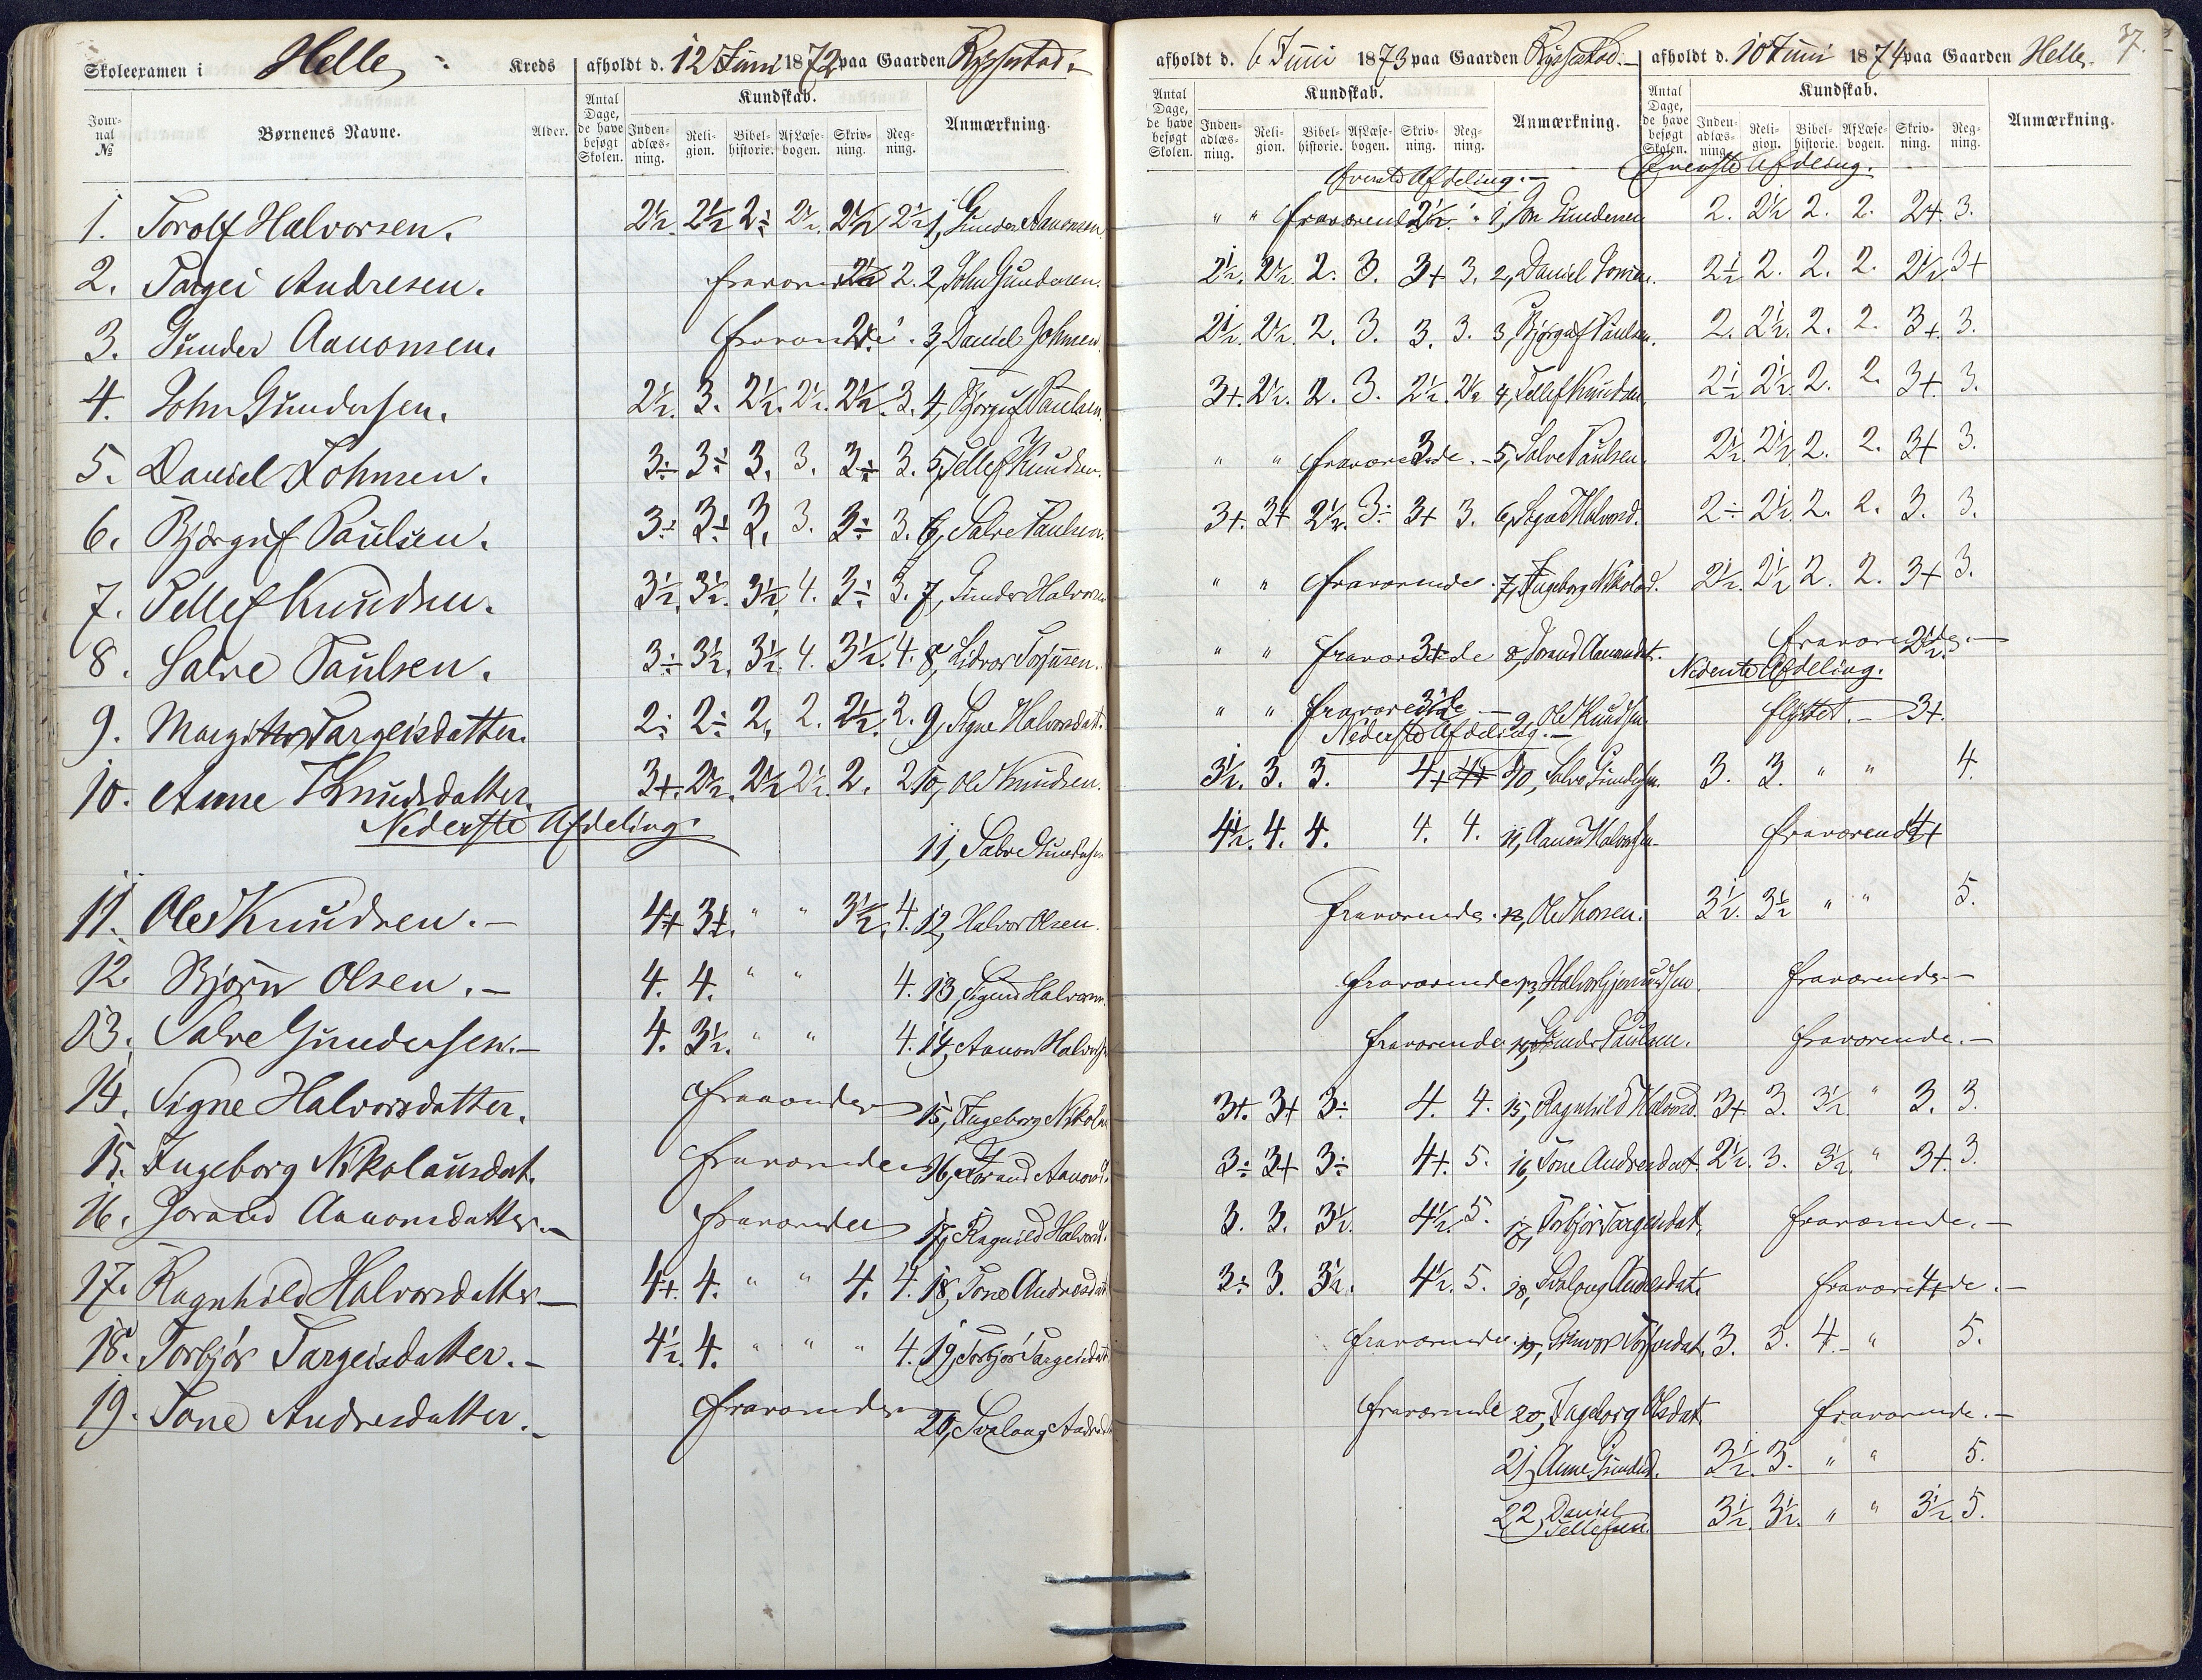 Skoleexamen i Helle Kreds afholdt d. 12 Juni 1872 paa Gaarden Rysstad.
Jour-nal № Børnenes Navne. Alder. Antal Dage, de have besøgt Skolen. Kundskab. Inden-adlæs-ning. Reli-gion. Bibel-historie. Af Læse-bogen. Skriv-ning. Reg-ning. Anmærkning.
1. Torolf Halvorsen. 2½. 2½ 2÷ 2½. 2½ 2½ 1, Gunder Aanonsen
2. Targei Andresen. fraværende 2½ 2. 2, John Gundersen.
3. Gunder Aanonsen. fraværende 2. 3, Daniel Johnsen
4. John Gundersen. 2½. 3. 2½. 2½. 2½. 3. 4, Bjørguf Paulsen
5. Daniel Johnsen. 3÷ 3÷ 3. 3. 3÷ 3. 5, Tellef Knudsen.
6. Bjørguf Paulsen. 3÷ 3÷ 3. 3. 3÷ 3. 6, Salve Paulsen.
7. Tellef Knudsen. 3½. 3½. 3½. 4. 3÷ 3. 7, Gunder Halvorsen
8. Salve Paulsen. 3÷ 3½. 3½. 4. 3½. 4. 8,
9. Margit Targeisdatter. 2÷ 2÷ 2. 2. 2½. 2. 9, Signe Halvorsdat.
10. Anne Knudsdatter. 3+. 2½. 2½ 2½. 2. 2. 10, Ole Knudsen.
Nederste Afdeling.
11, Salve Gundersen
11. Ole Knudsen. – 4+ 3+. " " 3½. 4. 12, Halvor Olsen.
12. Bjørn Olsen. – 4. 4. " " 4. 13, Sigurd Halvorsen.
13. Salve Gundersen. – 4. 3½. " " 4. 14, Aanon Halvorsen
14. Signe Halvorsdatter. fraværende 15, Ingeborg Nikolaud
15. Ingeborg Nikolausdat. fraværende 16, Jorand Aanonsd.
16. Jorand Aanonsdatter. – fraværende 17, Ragnild Halvorsd.
17. Ragnhild Halvorsdatter – 4+. 4. " " 4. 4. 18, Tone Andresdat
18. Torbjør Targeisdatter. – 4½. 4. " " " 4. 19, Torbjør Targeisdat
19. Tone Andresdatter. – fraværende 20, Svalaug Andresdat
afholdt d. 6 Juni 1873 paa Gaarden Rysstad. –
Antal Dage, de have besøgt Skolen. Kundskab. Inden-adlæs-ning. Reli-gion. Bibel-historie. Af Læse-bogen. Skriv-ning. Reg-ning. Anmærkning.
Øverste Afdeling. –
" " fraværende 2½. " 1, Jon Gundersen
2½. 2½. 2. 3. 3+ 3. 2, Daniel
2½. 2½. 2. 3. 3. 3. 3, Bjørguf Paulsen.
3+. 2½. 2. 3. 2½. 2½ 4, Tellef Knudsen.
" " fraværende 3. – 5, Salve Paulsen.
3+. 3+ 2½. 3÷ 3+ 3. 6, Signe Halvorsd.
" " fraværende. 7, Ingeborg Nikolausd.
" " fraværende 3+ 8, Jorand Aanonsdat.
" " fraværende 3½ –
Nederste Afdeling. – 9, Ole Knudsen
3½. 3. 3. 4+ 4+ 10, Salve Gundersen.
4½. 4. 4. 4. 4. 11, Aanon Halvorsen
fraværende. 12, Ole Thorsen.
fraværende 13, Halvor Gjermundsen.
fraværende 14, Gunder Paulsen.
3+. 3+ 3÷ 4. 4. 15, Ragnhild Halvorsd.
3÷ 3+ 3÷ 4+. 5. 16, Tone Andresdat.
3. 3. 3½. 4½. 5. 17, Torbjør Targeisdat.
3÷ 3. 3½. 4½. 5. 18, Svalaug Andresdat.
fraværende 19,
fraværende 20, Ingeborg Olsdat.
21, Anne Gundersd.
22, Daniel
Tellefsen.
37.
afholdt d. 10 Juni 1874 paa Gaarden Helle.
Antal Dage, de have besøgt Skolen. Kundskab. Inden-adlæs-ning. Reli-gion. Bibel-historie. Af Læse-bogen. Skriv-ning. Reg-ning. Anmærkning.
Øverste Afdeling.
2. 2½ 2. 2. 2+. 3.
2½ 2. 2. 2. 2½. 3+
2. 2½. 2. 2. 3+. 3.
2½ 2½. 2. 2. 3+. 3.
2½. 2½. 2. 2. 3+ 3.
2÷ 2½. 2. 2. 3. 3.
2½. 2½ 2. 2. 3+ 3.
fraværende 2½. –
Nederste Afdeling.
flyttet. – 3+.
3. 3. " " 4.
fraværende 4+
3½. 3½ " " 5.
fraværende –
fraværende. –
3+. 3. 3½ " 3. 3.
2½. 3. 3½. " 3+. 3.
fraværende. –
fraværende 4+. –
3. 3. 4. " 5.
fraværende. –
3½. 3. " " 5.
3½. 3½. " " 3½. 5.